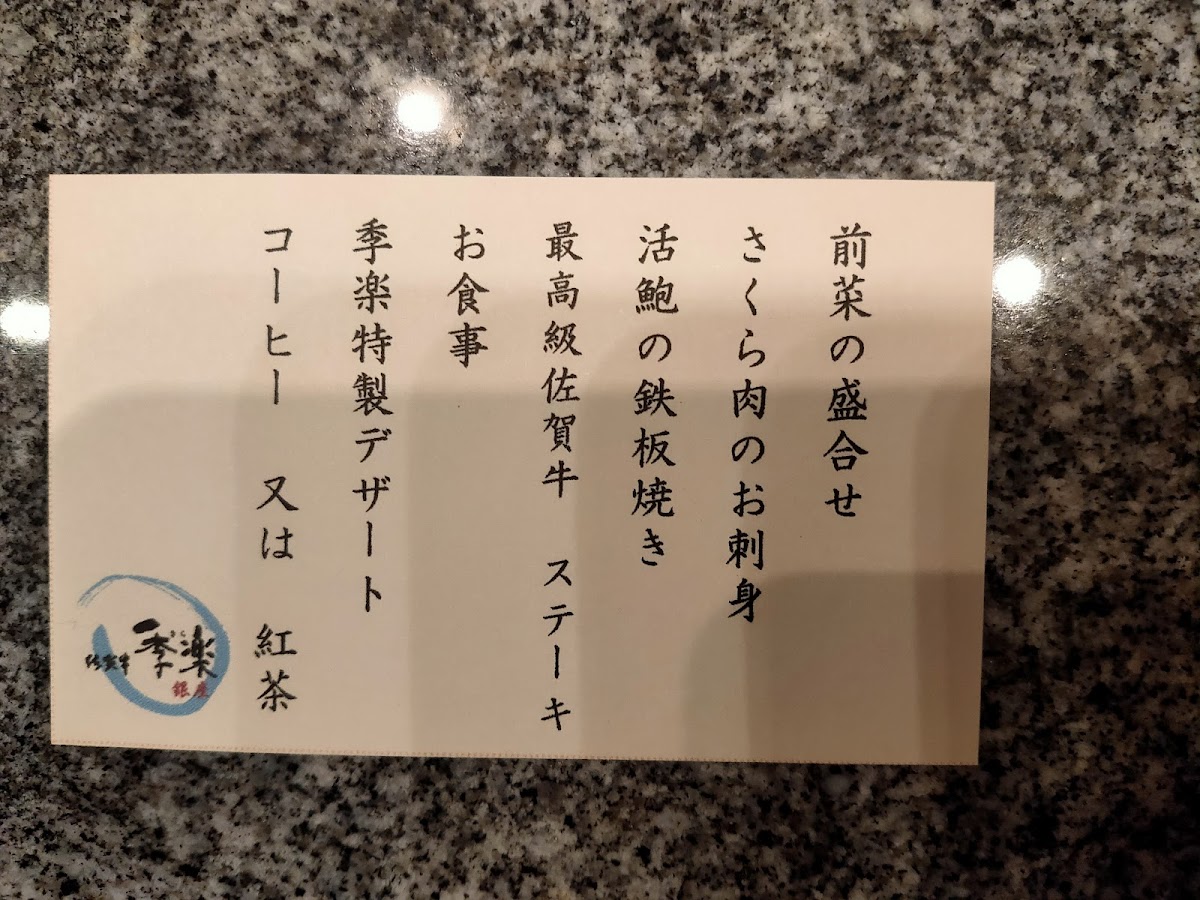 前菜の盛合せ
さくら肉のお刺身
活鮑の鉄板焼き
最高級佐賀牛 ステーキ
お食事
季楽特製デザート
コーヒー 又は 紅茶
佐賀牛
季楽
銀座